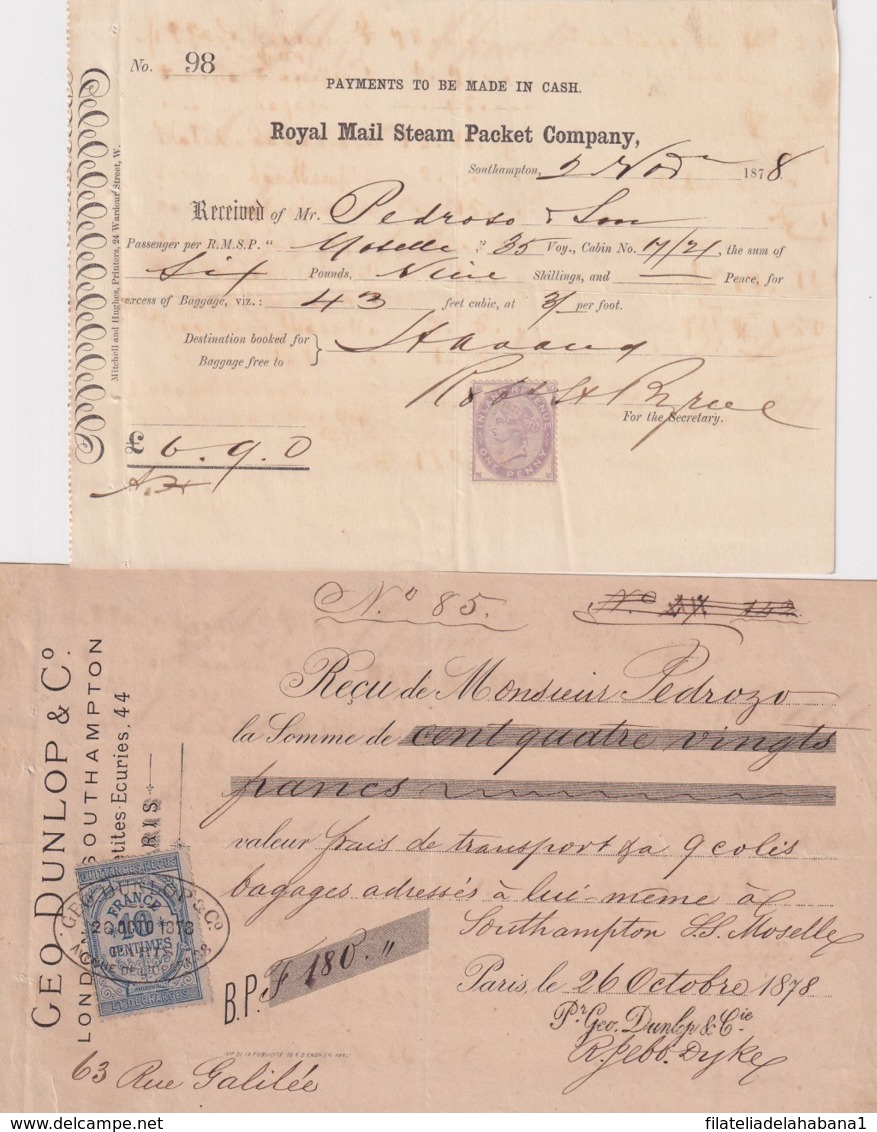 No. 98
PAYMENTS TO BE MADE IN CASH.
Royal Mail Steam Packet Company,
Southampton, 2 Novr 1878.
Received of Mr. Pedroso & Son
Passenger per R.M.S.P. " Moselle " 35 Voy., Cabin No. 17/21, the sum of
Six Pounds, Nine Shillings, and — Pence, for
excess of Baggage, viz.: 43 feet cubic, at 3/ per foot.
Destination booked for
Baggage free to
} Havana
Byrne
For the Secretary.
INLAND REVENUE
ONE PENNY
£ 6. 9. 0
Mitchell and Hughes, Printers, 24 Wardour Street, W.
No 85.
No 152
GEO DUNLOP & Co.
LOND SOUTHAMPTON
etites-Ecuries, 44
RIS
Reçu de Monsieur Pedrozo
la Somme de cent quatre vingts
francs
valeur frais de transport &a 9 colis
bagages adressés à lui-même à
Southampton SS. Moselle
B.P. F 180. "
Paris, le 26 Octobre 1878
Pr. Geo. Dunlop & Cie
R. Jebb. Dyke
QUITTANCES REÇUS
FRANCE
10
CENTIMES
ET DECHARGES
GEO DUNLOP & Co
26 OCTO 1878
PARIS
63 Rue Galilée
filateliadelahabana1